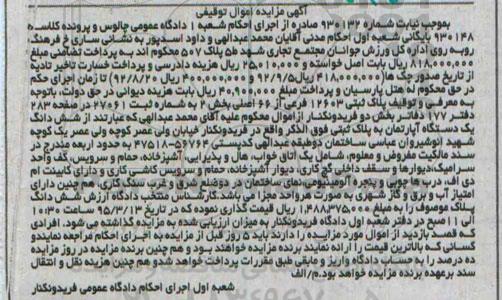 آگهی مزایده اموال توقیفی
بموجب نیابت شماره ۹۳۰۱۳۲ صادره از اجرای احکام شعبه ۱ دادگاه عمومی چالوس و پرونده کلاسه
۹۳۰۱۴۸ بایگانی شعبه اول احکام مدنی آقایان محمد عبدالهی و داود اسدپور به نشانی ساری خ فرهنگ
روبه روی اداره کل ورزش جوانان مجتمع تجاری شهد ط۵ پلاک ۵۰۷ محکوم اند به پرداخت تضامنی مبلغ
۸۱۸/۰۰۰/۰۰۰ ریال بابت اصل خواسته و ۲۵/۰۱۰/۰۰۰ ریال هزینه دادرسی و پرداخت خسارت تاخیر تادیه
از تاریخ صدور چک ها (۴۱۸/۰۰۰/۰۰۰ ریال ۹۲/۹/۵) (۴۰۰/۰۰۰/۰۰۰ ریال ۹۲/۸/۲۰) تا زمان اجرای حکم
در حق محکوم له هتل پارسیان و پرداخت مبلغ ۴۰/۹۰۰/۰۰۰ ریال بابت هزینه دیوانی در حق دولت، باتوجه
به معرفی و توقیف پلاک ثبتی ۱۲۶۰۳ فرعی از ۶۶ اصلی بخش ۲ به شماره ثبت ۲۷۰۶۱ در صفحه ۲۸۳
دفتر ۱۷۷ دفاتر بخش دو فریدونکنار از اموال محکوم علیه آقای محمد عبدالهی که عبارتند از شش دانگ
یک دستگاه آپارتمان به پلاک ثبتی فوق الذکر واقع در فریدونکنار خیابان ولی عصر کوچه ولی عصر یک کوچه
شهید انوشیروان عباسی ساختمان دوطبقه عبدالهی کدپستی ۵۶۷۶۴-۴۷۵۱۸ به حدود اربعه مندرج در
سند مالکیت مفروض و معلوم، شامل یک اتاق خواب، هال و پذیرایی، آشپزخانه، حمام و سرویس، کف واحد
سرامیک،دیوارها و سقف داخلی گچ کاری، دیوار آشپزخانه، حمام و سرویس کاشی کاری و دارای کابینت ام
دی اف، درب ها چوبی و پنجره آلومینیومی،نمای ساختمان در دوضلع شرق و غرب سنگ کاری، هم چنین دارای
امتیاز آب و برق و گاز شهری به صورت هرواحد مجزا می باشد.کارشناس منتخب دادگاه ارزش شش دانگ
پلاک موصوف را به مبلغ ۱/۴۸۸/۳۷۵/۰۰۰ ریال قیمت گذاری نموده که در تاریخ ۹۵/۳/۱۳ ساعت ۱۰:۳۰
الی ۱۱ صبح در دفتر شعبه اول دادگاه فریدونکنار به میزان ارزیابی شده به مزایده گذاشته می شود. افرادی
که قصد بازدید از اموال مورد مزایده را دارند باید ۵ روز قبل از مزایده به اجرای احکام مراجعه نمایندو
کسانی که بالاترین قیمت را ارائه نمایند برنده مزایده خواهند بود و هم چنین برنده مزایده در روز مزایده
ده درصد را به حساب دادگاه واریز و مابقی طبق مقررات پرداخت خواهد شدو هم چنین هزینه نقل و انتقال
سند برعهده برنده مزایده خواهد بود.م/الف
شعبه اول اجرای احکام دادگاه عمومی فریدونکنار